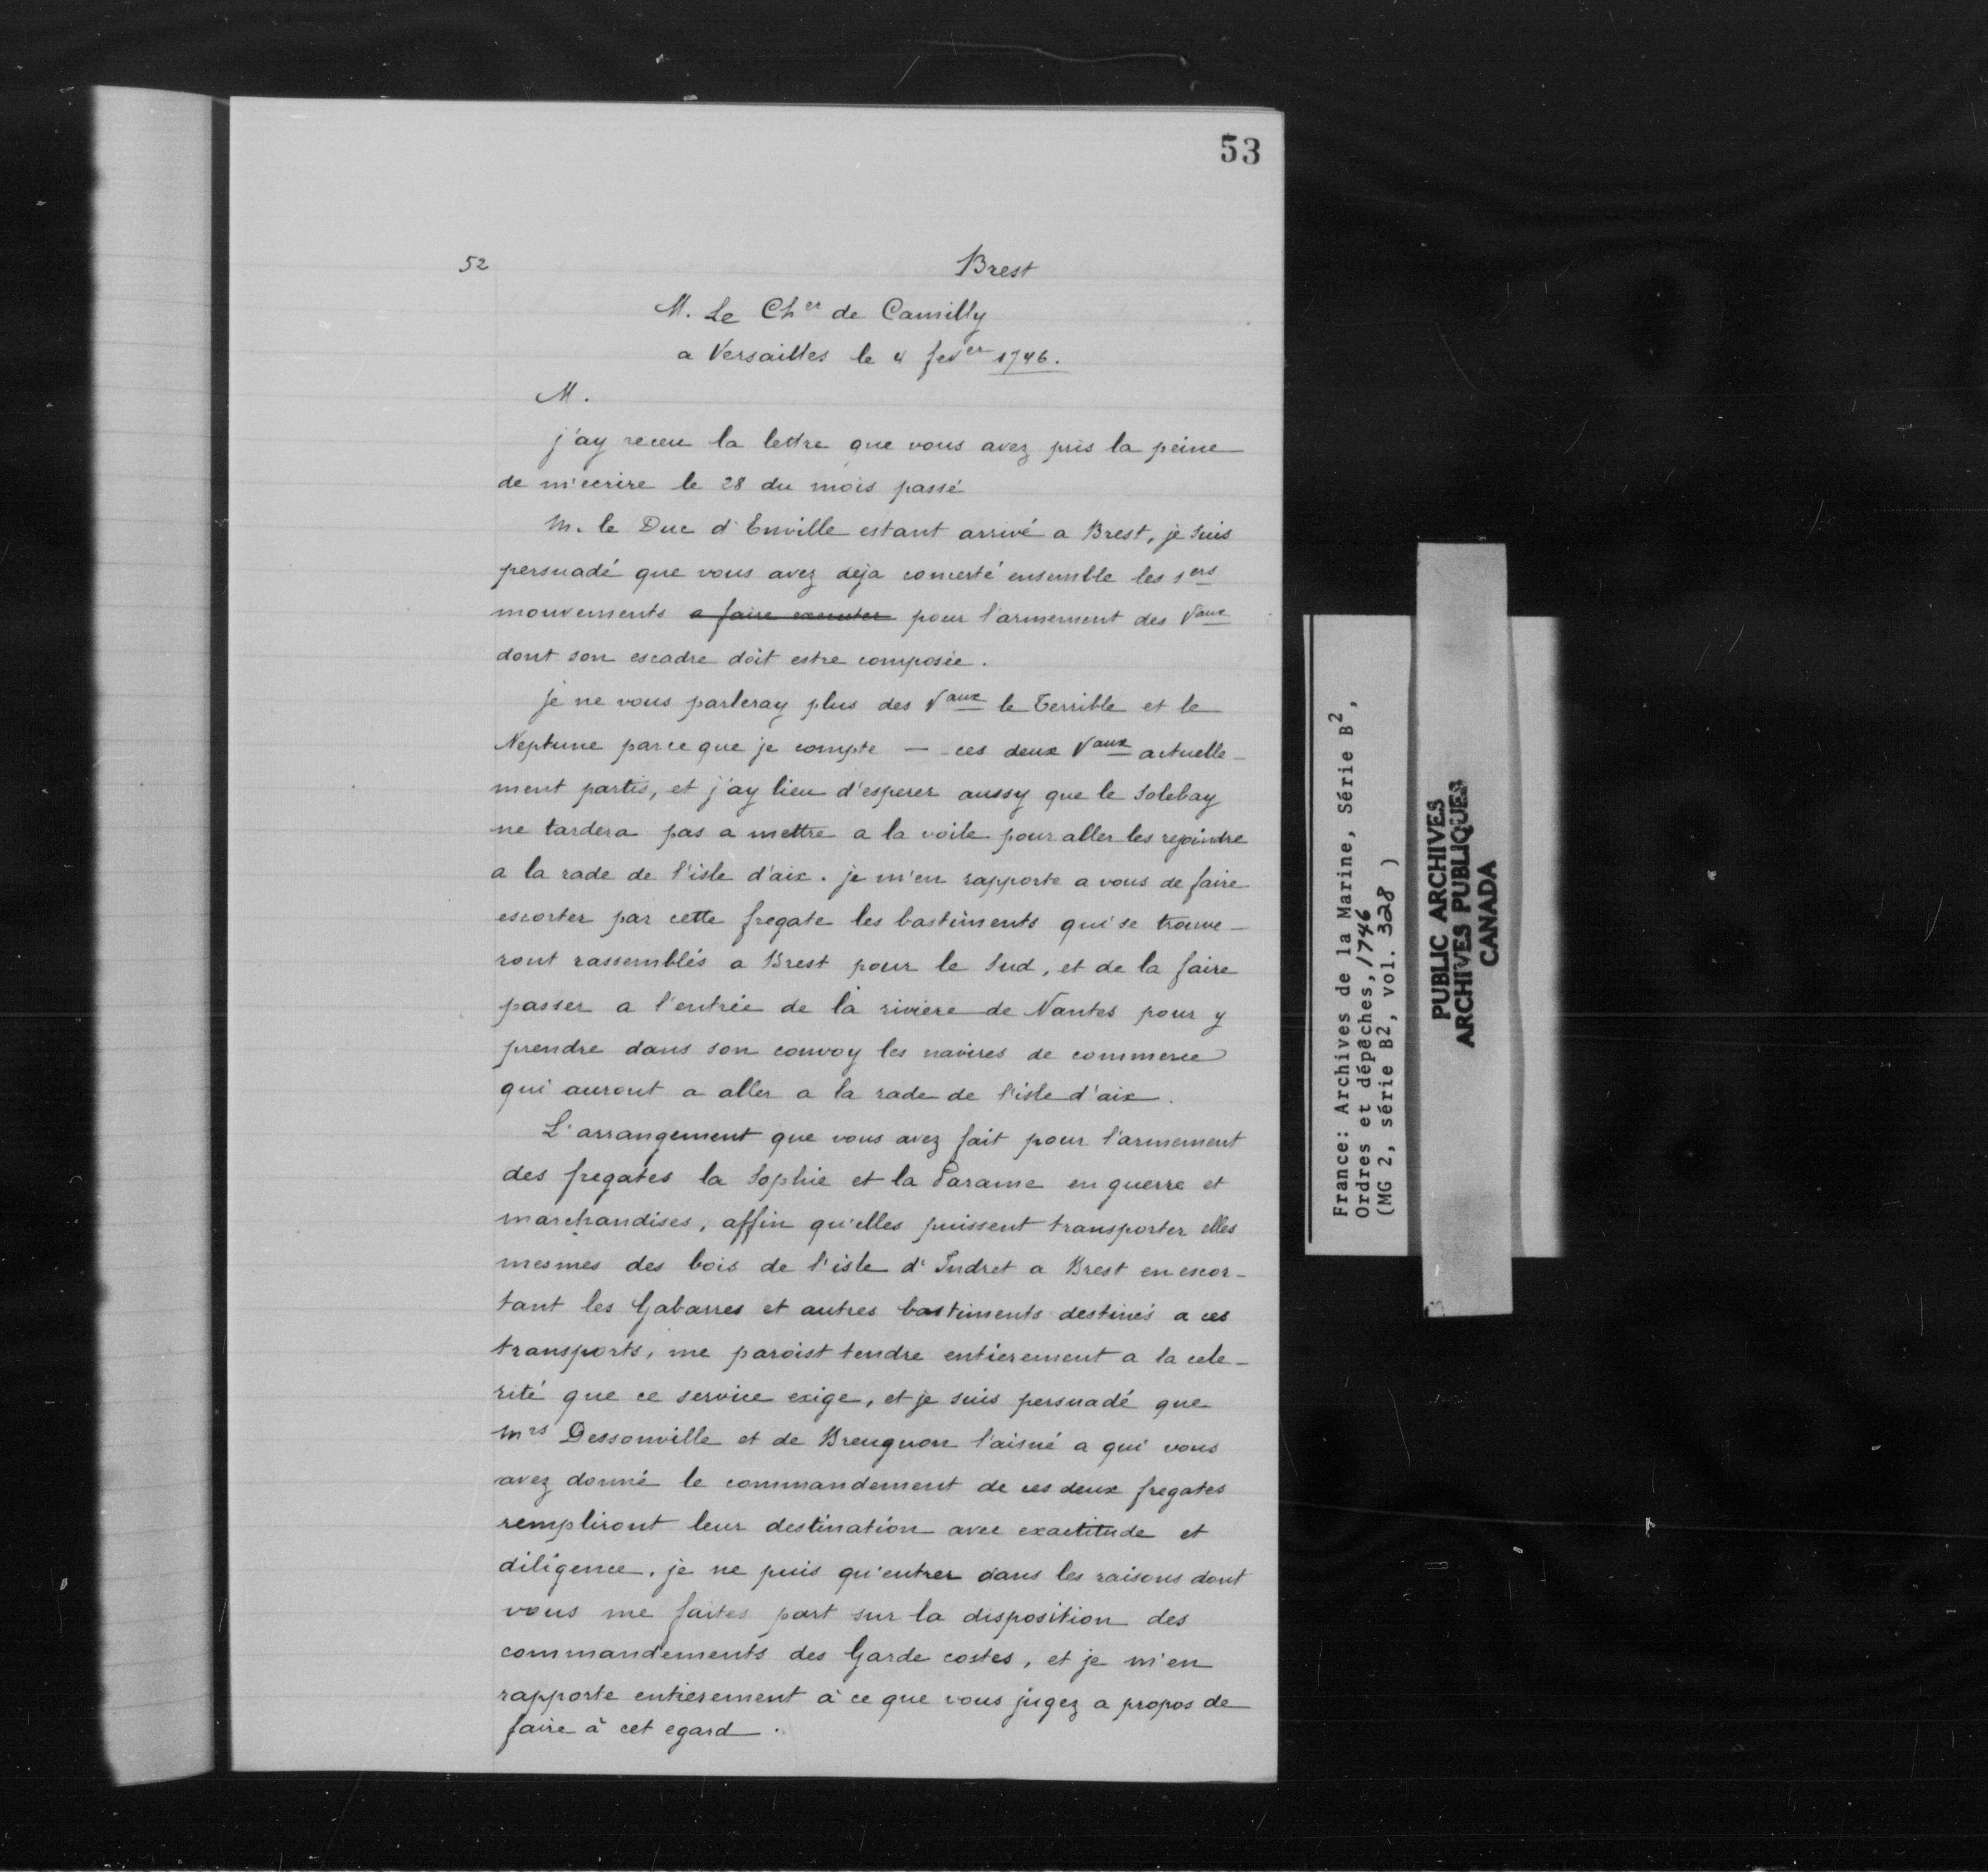 53
52
Brest
M. Le Cher de Camilly
a Versailles le 4 fever 1746.
M.
j'ay receu la lettre que vous avez pris la peine
de m'ecrire le 28 du mois passé
M. le Duc d'Enville estant arrivé a Brest, je suis
persuadé que vous avez deja concerté ensemble les 1ers
mouvements a faire executer pour l'armement des Vaux
dont son escadre doit estre composée.
je ne vous parleray plus des Vaux le Terrible et le
Neptune parce que je compte — ces deux Vaux actuelle-
ment partis, et j'ay lieu d'esperer aussy que le Solebay
ne tardera pas a mettre a la voile pour aller les rejoindre
a la rade de l'isle d'aix. je m'en rapporte a vous de faire
escorter par cette fregate les bastiments qui se trouve-
ront rassemblés a Brest pour le Sud, et de la faire
passer a l'entrée de la riviere de Nantes pour y
prendre dans son convoy les navires de commerce
qui auront a aller a la rade de l'isle d'aix.
L'arrangement que vous avez fait pour l'armement
des fregates la Sophie et la Parame en guerre et
marchandises, affin qu'elles puissent transporter elles
mesmes des bois de l'isle d'Indret a Brest en escor-
tant les Gabarres et autres bastiments destinés a ces
transports, me paroist tendre entierement a la cele-
rité que ce service exige, et je suis persuadé que
Mrs Dessonville et de Breugnon l'aisné a qui vous
avez donné le commandement de ces deux fregates
rempliront leur destination avec exactitude et
diligence. je ne puis qu'entrer dans les raisons dont
vous me faites part sur la disposition des
commandements des Garde costes, et je m'en
rapporte entierement à ce que vous jugez a propos de
faire à cet egard.
France: Archives de la Marine, Série B2,
Ordres et dépêches, 1746
(MG 2, série B2, vol. 328 )
PUBLIC ARCHIVES
ARCHIVES PUBLIQUES
CANADA